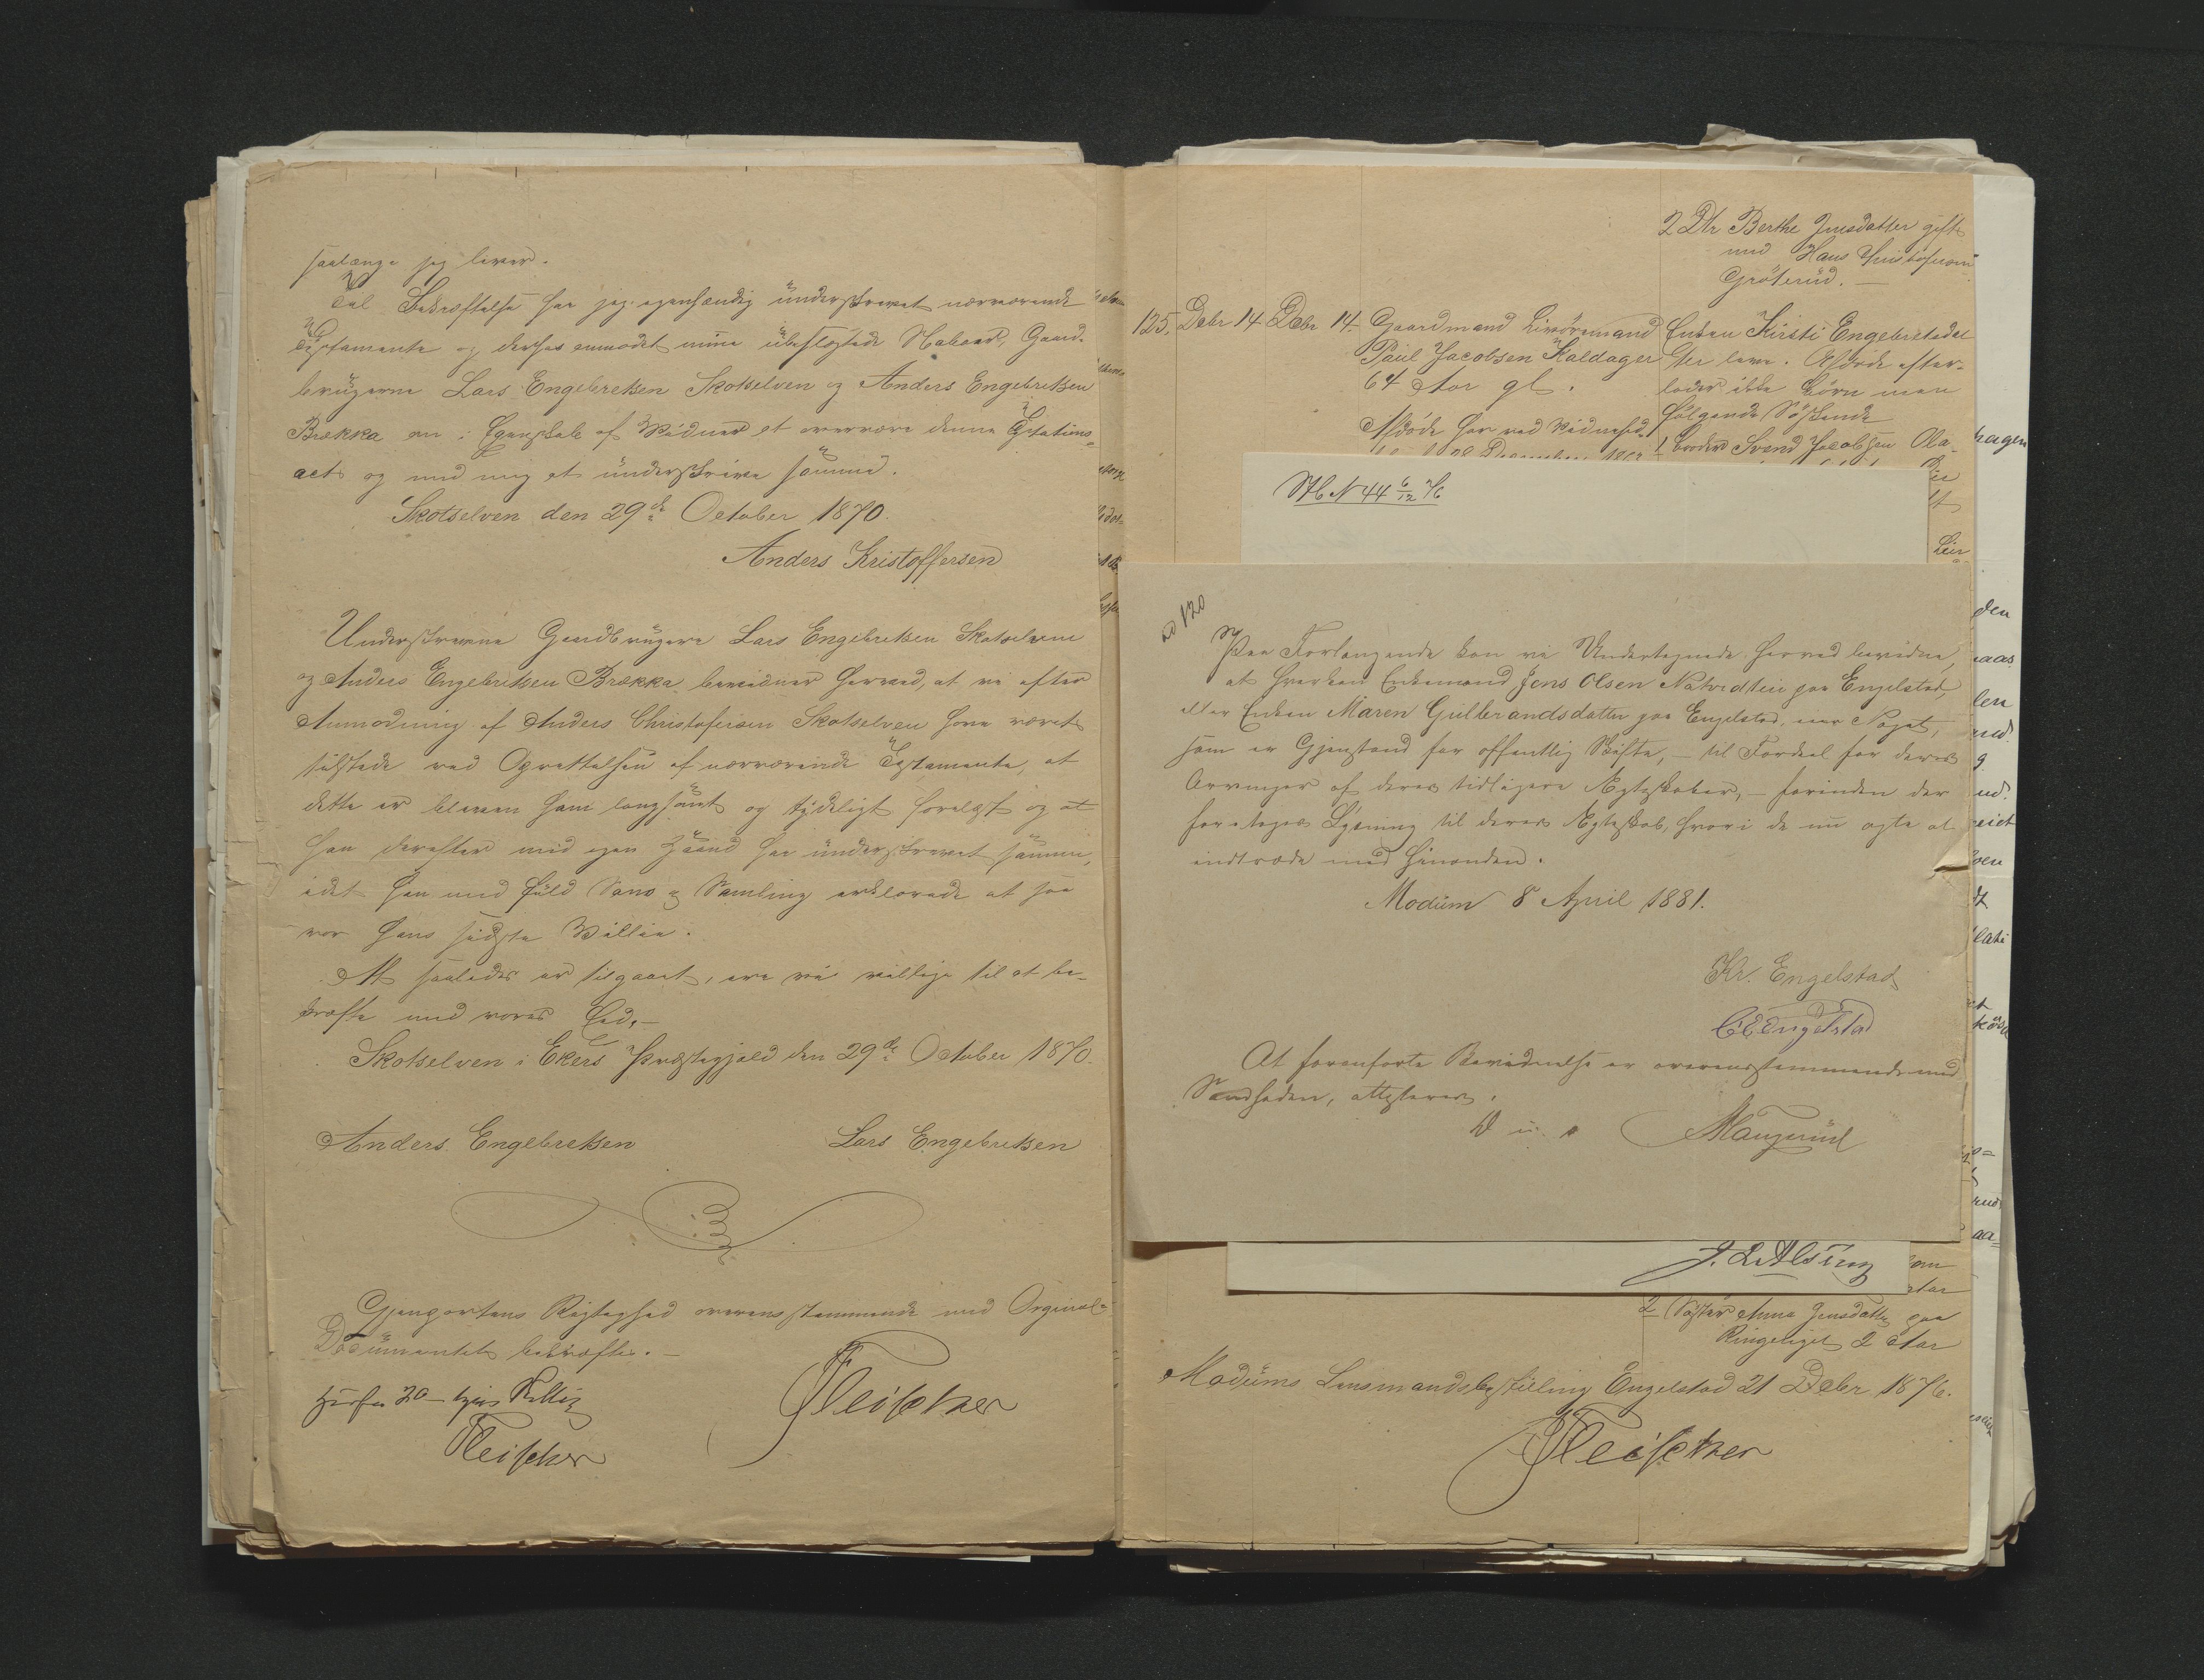 saalænge jeg lever.
Til Bekræftelse har jeg egenhændig underskrevet nærværende
Testamente og derhos anmodet mine ubeslægtede Naboer, Gaard-
brugerne Lars Engebretsen Skotselven og Anders Engebretsen
Brekka om i Egenskab af Vidner at overvære denne Testations-
act og med mig at underskrive samme.
Skotselven den 29de October 1870.
Anders Kristoffersen
Underskrevne Gaardbrugere Lars Engebretsen Skotselven
og Anders Engebretsen Brækka bevidner herved, at vi efter
Anmodning af Anders Christofersen Skotselven have været
tilstede ved Oprettelsen af nærværende Testamente, at
dette er bleven ham langsomt og tydeligt forelæst og at
han derefter med egen Haand har underskrevet samme,
idet han med fuld Sans og Samling erklærede at saa
var hans sidste Villie.
At saaledes er tilgaaet, ere vi villige til at be-
kræfte med vores Eed.-
Skotselven i Ekers Præstegjeld den 29de October 1870.
Anders Engebretsen Lars Engebretsen
Gjenpartens Rigtighed overensstemmende med Orginal-
Documentet bekræftes.-
Fleischer
Fleischer
2 Dtr Berthe Jensdatter gift
med Hans Christofersen
Grøterud.-
125. Debr 14 Debr 14. Gaardmand Livøremand Enken Kirsti Engebretsdat
Paul Jacobsen Kaldager ter lever. Afdøde efter-
64 Aar gl. lader ikke Børn men
Afdøde har ved følgende Søskende
1 Broder Svend Jacobsen Ola-
N 44 6/12 76
ad 120
Paa Forlangende kan vi Undertegnede herved bevidne,
at hverken Enkemand Jens Olsen Natvedtein paa Engelstad,
eller Enken Maren Gulbrandsdatter paa Engelstad, eier Noget,
som er Gjenstand for offentlig Skifte, - til Fordeel for deres
Arvinger af deres tidligere Ægteskaber, - forinden der
foretages Lysning til deres Ægteskab, hvori de nu agte at
indtræde med hinanden.
Modum 8 April 1881.
Kr. Engelstad
C E Engelstad
At foranførte Bevidnelse er overensstemmende med
Sandheden, attesteres.
D u s Maugerud
2 Søster Anna Jensdatter paa
Ringeriget 2 Aar
Modums Lensmandsbestilling Engelstad 21 Debr 1876.
Fleischer